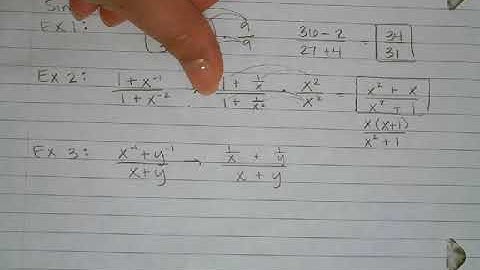 Sim
Ex 1: 9/9 36-2/27+4 = 34/31
Ex 2: 1+x⁻¹/1+x⁻² 1+1/x/1+1/x² · x²/x² = x²+x/x²+1
x(x+1)/x²+1
Ex 3: x⁻¹+y⁻¹/x+y → 1/x+1/y/x+y